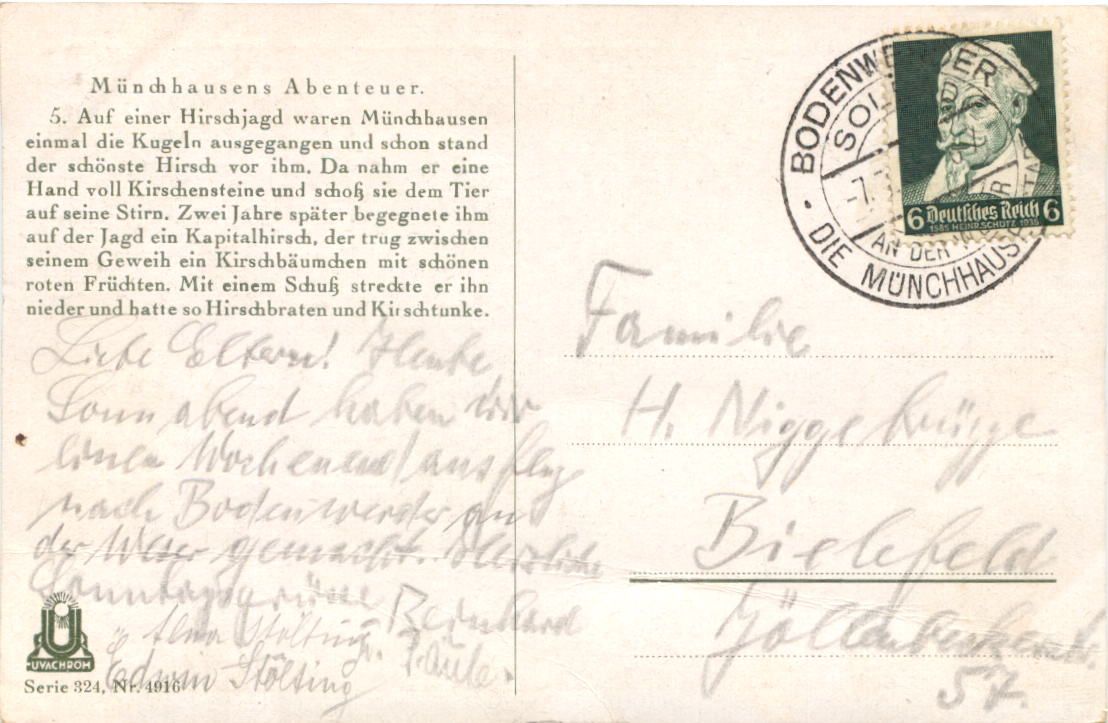 Münchhausens Abenteuer.
5. Auf einer Hirschjagd waren Münchhausen
einmal die Kugeln ausgegangen und schon stand
der schönste Hirsch vor ihm. Da nahm er eine
Hand voll Kirschensteine und schoß sie dem Tier
auf seine Stirn. Zwei Jahre später begegnete ihm
auf der Jagd ein Kapitalhirsch, der trug zwischen
seinem Geweih ein Kirschbäumchen mit schönen
roten Früchten. Mit einem Schuß streckte er ihn
nieder und hatte so Hirschbraten und Kirschtunke.
Liebe Eltern! Heute
Sonnabend haben wir
einen Wochenendausflug
nach Bodenwerder an
der Weser gemacht. Herzliche
Sonntagsgrüsse Bernhard
Stölting u. Paula.
Edwin Stölting
UVACHROM
Serie 324, Nr. 4916
BODENWERDER
SOL
-7.
AN DER
DIE MÜNCHHAUS
6 Deutsches Reich 6
1585 HEINR. SCHÜTZ 1935
Familie
H. Niggebrügge
Bielefeld
Jöllenbeckerstr.
57.